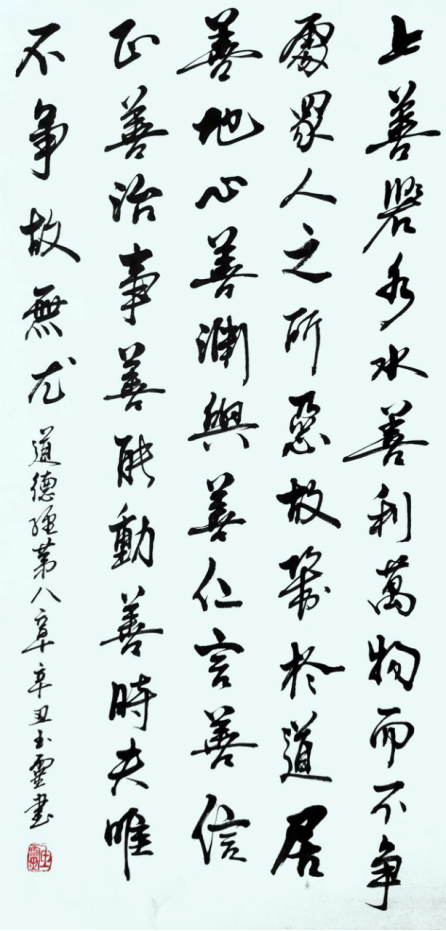 上善譬水水善利萬物而不爭
處衆人之所惡故幾於道居
善地心善淵與善仁言善信
正善治事善能動善時夫唯
不爭故無尤
道德經第八章辛丑玉靈書